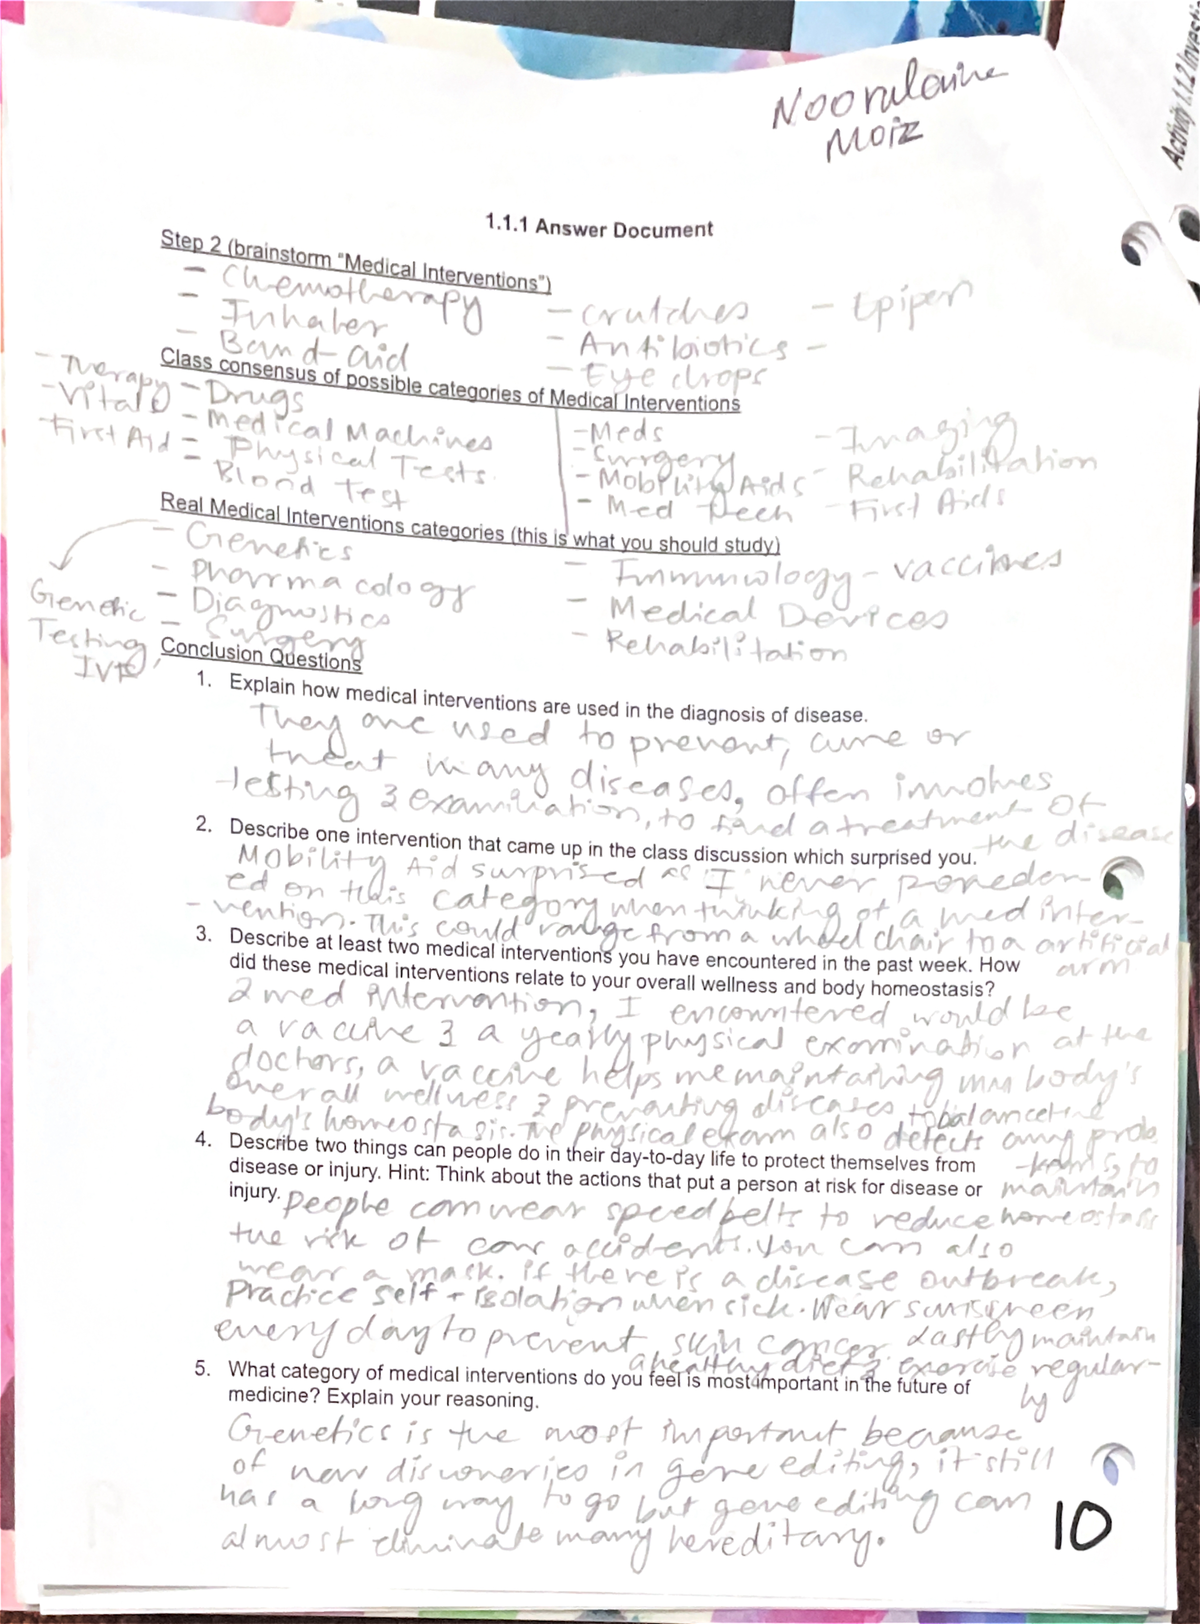 Activity 1.1.2 Investi
Noorulaine
Moiz
1.1.1 Answer Document
Step 2 (brainstorm "Medical Interventions")
- Chemotherapy
- Inhaler
- Band-aid
- Crutches
- Antibiotics -
- Eye drops
- Epipen
Class consensus of possible categories of Medical Interventions
- Therapy
- Vitals
- First Aid
- Drugs
- Medical Machines
- Physical Tests.
- Blood Test
- Meds
- Surrgery
- Mobility Aids
- Med Tech
- Imaging
- Rehabilitation
- First Aids
Real Medical Interventions categories (this is what you should study)
- Genetics
- Pharrmacology
- Diagnostics
- Surgery
Genetic
Testing,
IVF
- Immunology - vaccines
- Medical Devices
- Rehabilitation
Conclusion Questions
1. Explain how medical interventions are used in the diagnosis of disease.
They are used to prevent, cure or
treat many diseases, often involves
testing & examination, to find a treatment of
the disease
2. Describe one intervention that came up in the class discussion which surprised you.
Mobility Aid surprised as I never ponder-
ed on this category when thinking of a med inter-
-vention. This could range from a wheel chair to a artificial
arm
3. Describe at least two medical interventions you have encountered in the past week. How
did these medical interventions relate to your overall wellness and body homeostasis?
2 med intervention, I encountered would be
a vaccine & a yearly physical examination at the
doctors, a vaccine helps me maintaining my body's
overall wellness & preventing diseases, to balance the
body's homeostasis. The physical exam also detects any prob
-lems, to
maintain
homeostasis
4. Describe two things can people do in their day-to-day life to protect themselves from
disease or injury. Hint: Think about the actions that put a person at risk for disease or
injury.
People can wear speedbelts to reduce
the risk of car accidents. You can also
wear a mask. if there is a disease outbreak,
Practice self-isolation when sick. Wear sunscreen
everyday to prevent skin cancer. Lastly maintain
a healthy diet & exercise regular-
ly
5. What category of medical interventions do you feel is most important in the future of
medicine? Explain your reasoning.
Genetics is the most important because
of new discoveries in gene editing, it still
has a long way to go but gene editing can
almost eliminate many hereditary.
10